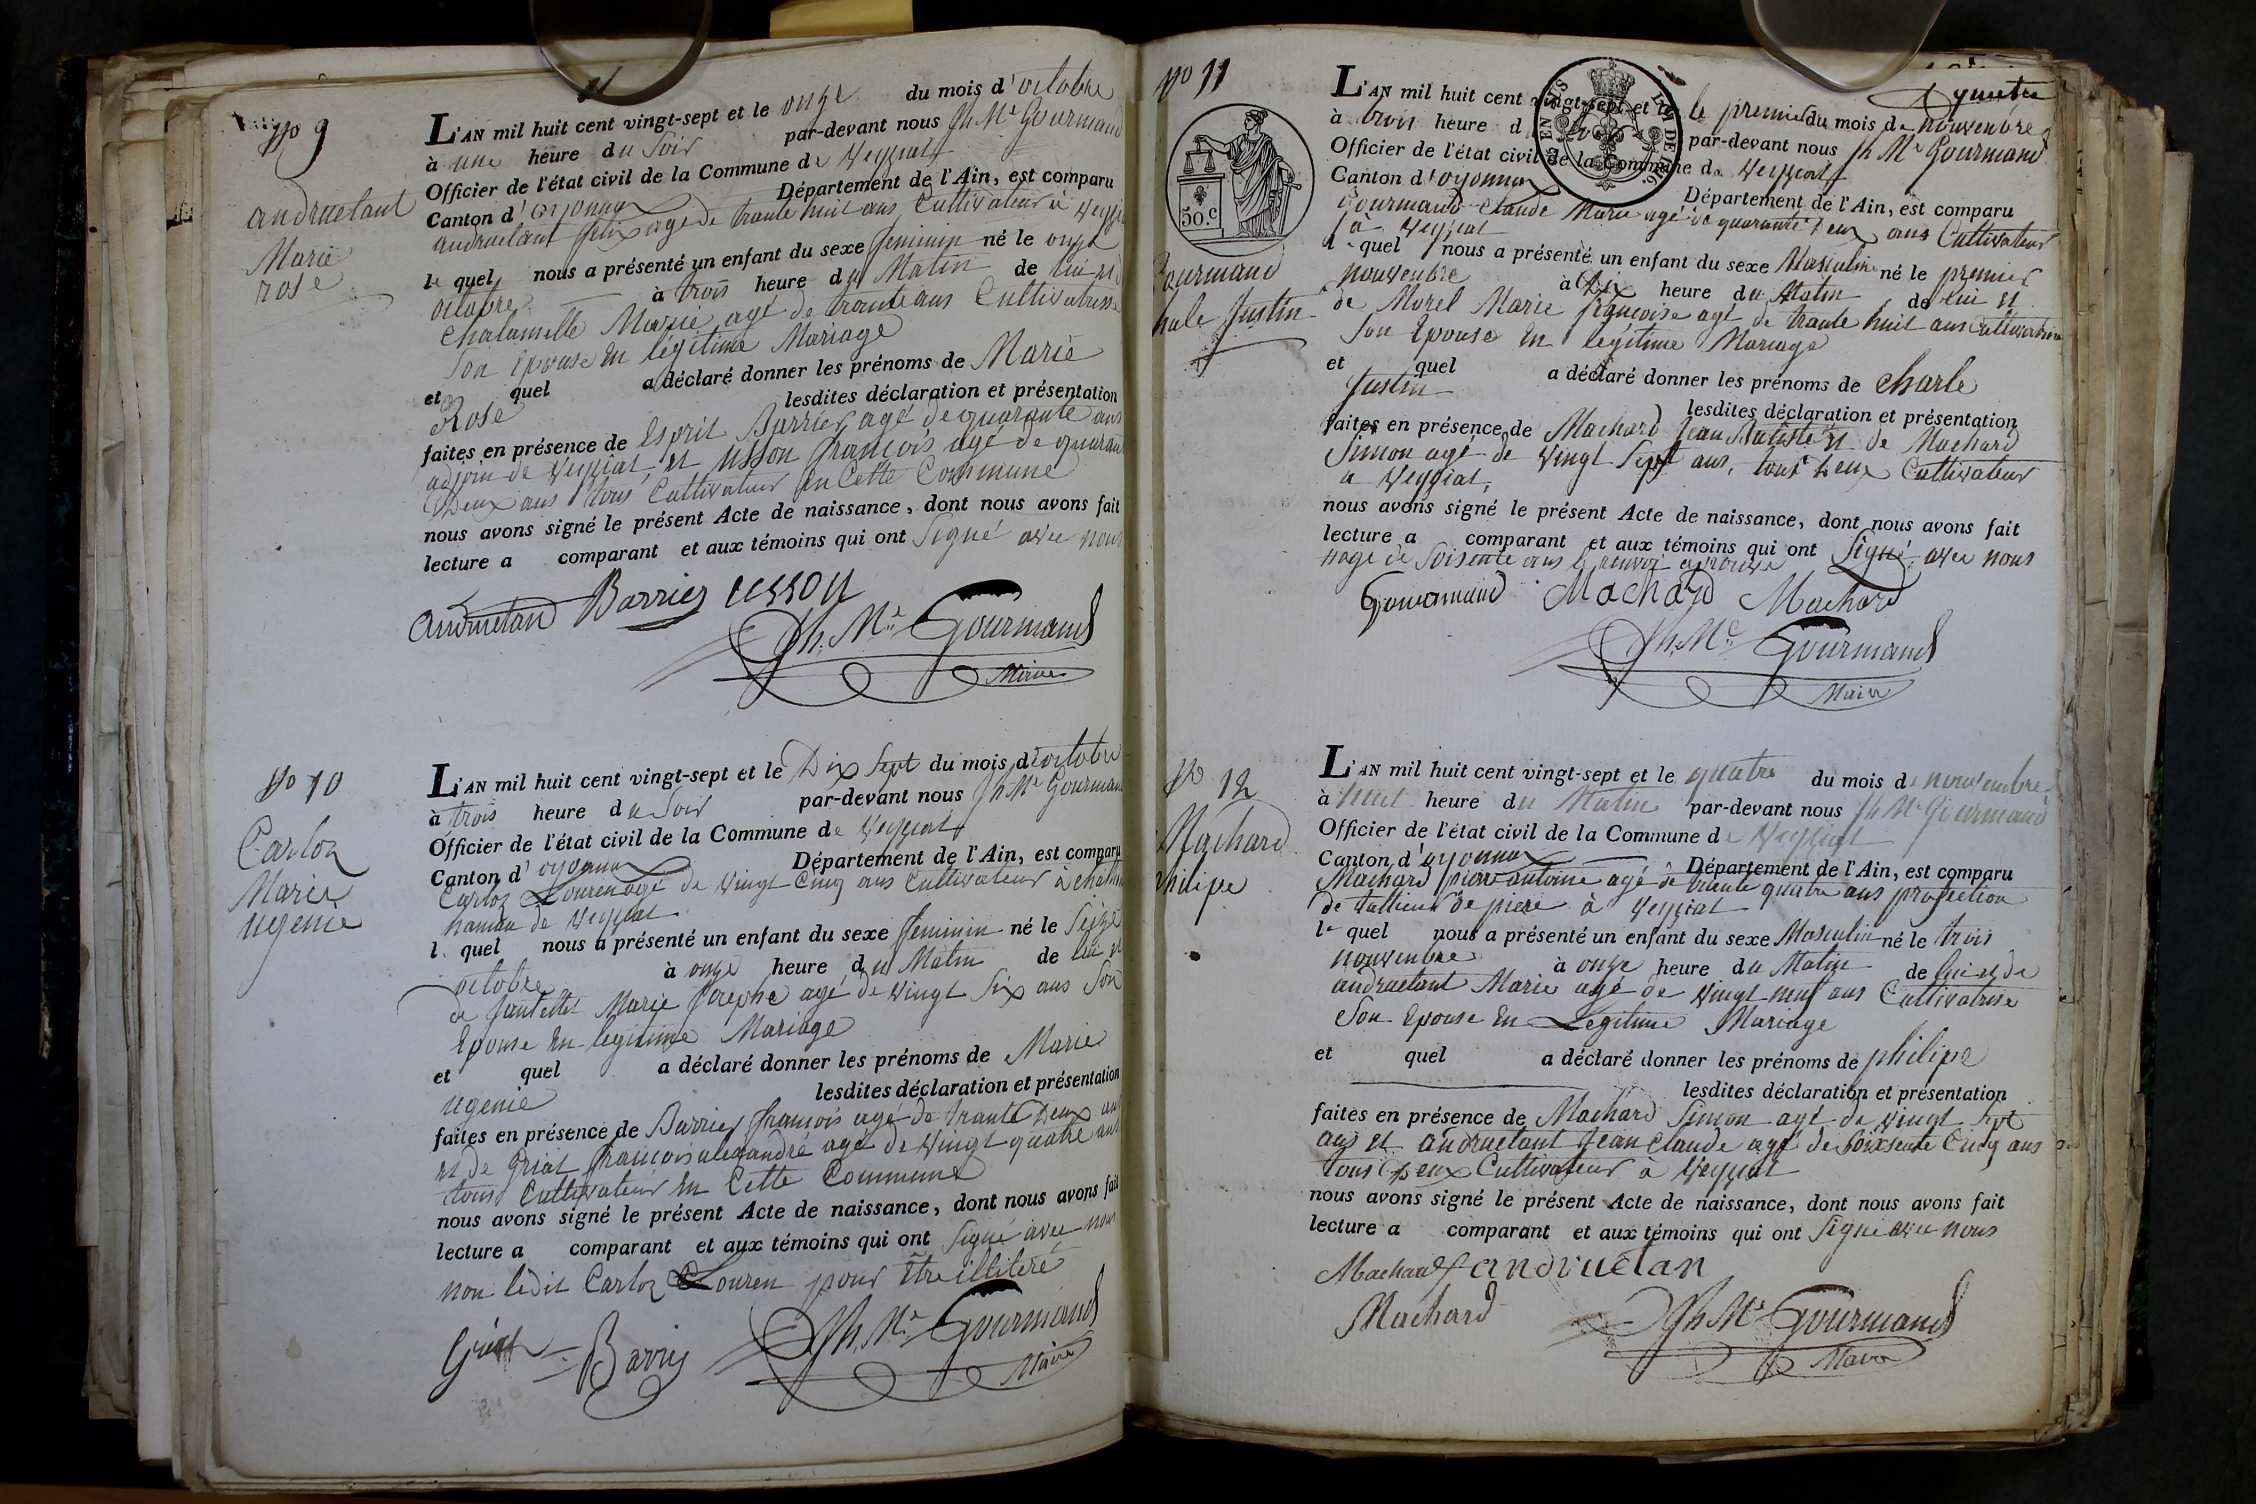 No 9
andruetant
Marie
rose
L'AN mil huit cent vingt-sept et le onze du mois d'octobre
à une heure du Soir par-devant nous Jh Me Gourmand
Officier de l'état civil de la Commune de Veyziat
Canton d'oyonnax Département de l'Ain, est comparu
andruetant felix age de trante huit ans Cultivateur à Veyzia
le quel nous a présenté un enfant du sexe feminin né le onze
octobre à trois heure du Matin de lui et
Chalamelle Marie agé de trante ans Cultivatrisse
Son Epouse En légitime Mariage
et quel a déclaré donner les prénoms de Marie
Rose lesdites déclaration et présentation
faites en présence de Esprit Barrier agé de quarante ans
adjoin de Veyziat et usson françois agé de quarant
Deux ans tous Cultivateur En Cette Commune
nous avons signé le présent Acte de naissance, dont nous avons fait
lecture a comparant et aux témoins qui ont Signé avec nous
andruetan Barrier usson
Jh. Me Gourmand
Maire
No 10
Carloz
Marie
ugenie
L'AN mil huit cent vingt-sept et le Dix Sept du mois d'octobre
à trois heure du Soir par-devant nous Jh Me Gourman
Officier de l'état civil de la Commune de Veyziat
Canton d'oyonnax Département de l'Ain, est comparu
Carloz Louren agé de vingt Cinq ans Cultivateur à
hamau de Veyziat
l. quel nous a présenté un enfant du sexe feminin né le Seize
octobre à onze heure du Matin de lui et
de Marie Josephe agé de vingt Six ans Son
Epouse En legitime Mariage
et quel a déclaré donner les prénoms de Marie
ugenie lesdites déclaration et présentation
faites en présence de Barrier françois agé de trante Deux ans
et de Griat françois alexandre agé de vingt quatre ans
tous Cultivateur En Cette Commune
nous avons signé le présent Acte de naissance, dont nous avons fait
lecture a comparant et aux témoins qui ont Signé avec nous
non ledit Carloz Louren pour être illiteré
Griat Barrier Jh. Me Gourmand
Maire
No 11
50.c
Gourmand
harle Justin
quatre
L'AN mil huit cent vingt-sept et le premier du mois de nouvembre
à trois heure d par-devant nous Jh Me Gourmand
Officier de l'état civil de la Commune de Veyziat
Canton d'oyonnax Département de l'Ain, est comparu
Gourmand Claude Marie agé de quarante deux ans Cultivateur
à Veyziat
l. quel nous a présenté un enfant du sexe Masculin né le premier
nouvembre à Dix heure du Matin de lui et
de Morel Marie françoise agé de trante huit ans Cultivatrice
Son Epouse En légitime Mariage
et quel a déclaré donner les prénoms de Charle
Justin lesdites déclaration et présentation
faites en présence de Machard Jean Batiste et de Machard
Simon agé de vingt Sept ans, tous Deux Cultivateur
a Veyziat,
nous avons signé le présent Acte de naissance, dont nous avons fait
lecture a comparant et aux témoins qui ont Signé avec nous
Gourmand Machard Machard
Jh. Me Gourmand
Maire
No 12
Machard
philipe
L'AN mil huit cent vingt-sept et le quatre du mois de nouvembre
à heure du Matin par-devant nous Jh Me Gourmand
Officier de l'état civil de la Commune de Veyziat
Canton d'oyonnax Département de l'Ain, est comparu
Machard pierre antoine agé de trante quatre ans profection
de tallieur de piere à Veyziat
le quel nous a présenté un enfant du sexe Masculin né le trois
nouvembre à onze heure du Matin de lui et de
andruetant Marie agé de vingt neuf ans Cultivatrise
Son Epouse En Legitime Mariage
et quel a déclaré donner les prénoms de philipe
lesdites déclaration et présentation
faites en présence de Machard Simon agé de vingt Sept
ans et andruetant Jean Claude agé de Soixsente Cinq ans
tous Deux Cultivateur à Veyziat
nous avons signé le présent Acte de naissance, dont nous avons fait
lecture a comparant et aux témoins qui ont Signé avec nous
Machard andruetan
Machard Jh Me Gourmand
Maire